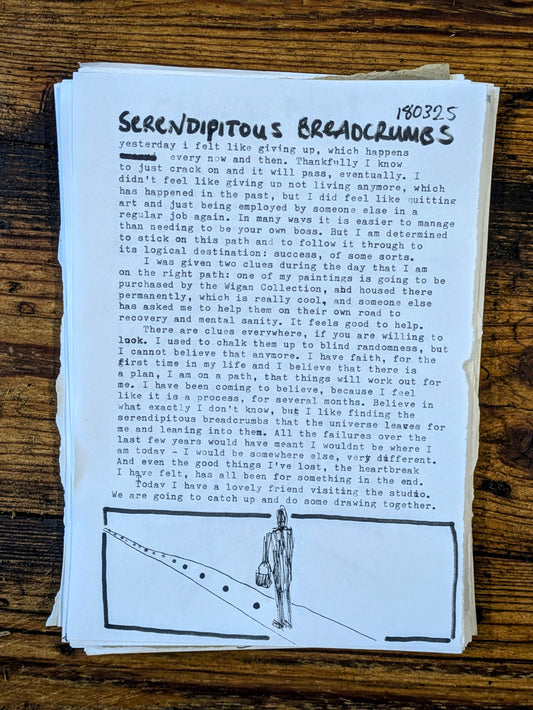 180325
SERENDIPITOUS BREADCRUMBS
yesterday i felt like giving up, which happens
every now and then. Thankfully I know
to just crack on and it will pass, eventually. I
didn't feel like giving up not living anymore, which
has happened in the past, but I did feel like quitting
art and just being employed by someone else in a
regular job again. In many ways it is easier to manage
than needing to be your own boss. But I am determined
to stick on this path and to follow it through to
its logical destination: success, of some sorts.
I was given two clues during the day that I am
on the right path: one of my paintings is going to be
purchased by the Wigan Collection, and housed there
permanently, which is really cool, and someone else
has asked me to help them on their own road to
recovery and mental sanity. It feels good to help.
There are clues everywhere, if you are willing to
look. I used to chalk them up to blind randomness, but
I cannot believe that anymore. I have faith, for the
first time in my life and I believe that there is
a plan, I am on a path, that things will work out for
me. I have been coming to believe, because I feel
like it is a process, for several months. Believe in
what exactly I don't know, but I like finding the
serendipitous breadcrumbs that the universe leaves for
me and leaning into them. All the failures over the
last few years would have meant I wouldnt be where I
am today - I would be somewhere else, very different.
And even the good things I've lost, the heartbreak
I have felt, has all been for something in the end.
Today I have a lovely friend visiting the studio.
We are going to catch up and do some drawing together.